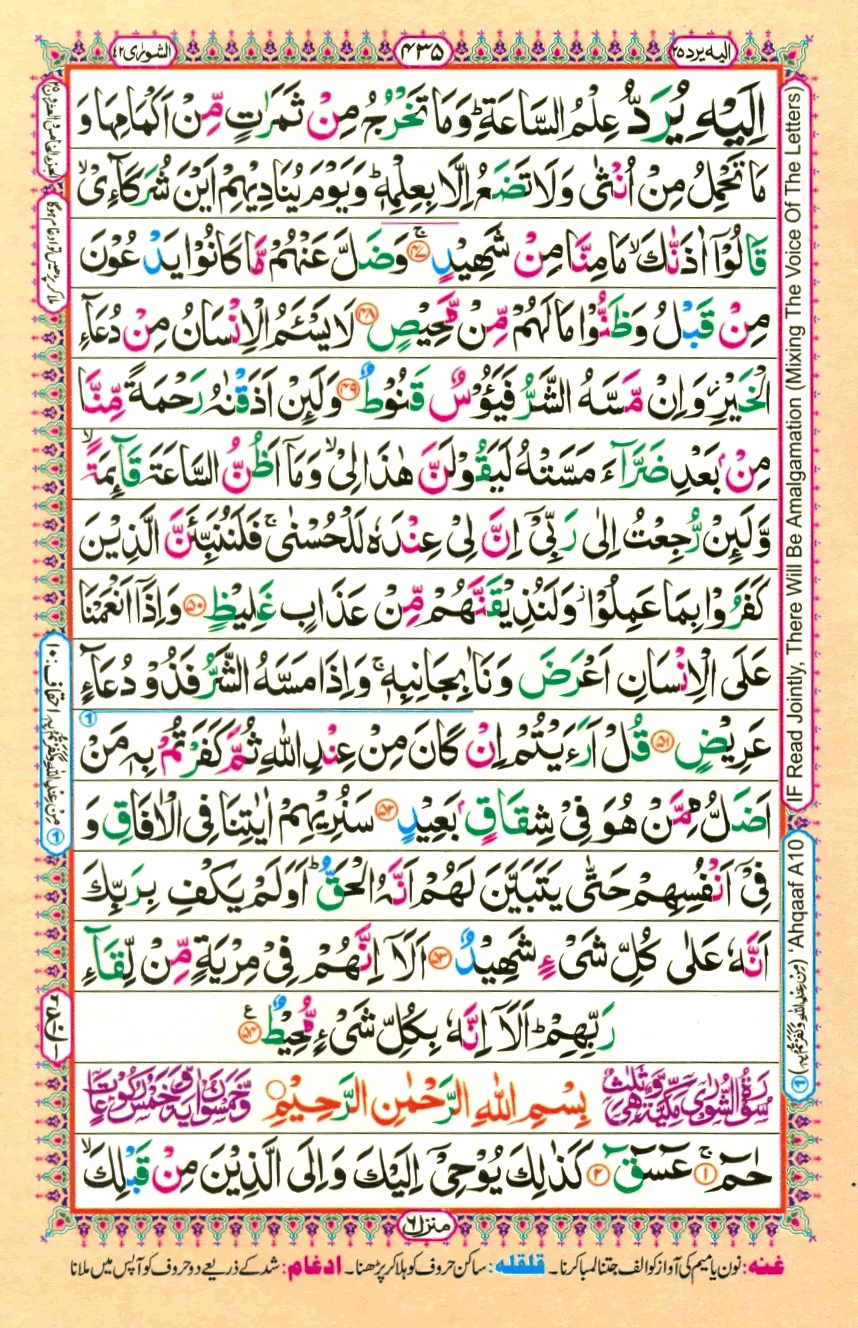 الیه یرد ٢٥
٤٣٥
الشورٰی ٤٢
اِلَيْهِ يُرَدُّ عِلْمُ السَّاعَةِ ؕ وَمَا تَخْرُجُ مِنْ ثَمَرٰتٍ مِّنْ اَكْمَامِهَا وَ
مَا تَحْمِلُ مِنْ اُنْثٰى وَلَا تَضَعُ اِلَّا بِعِلْمِهٖ ؕ وَيَوْمَ يُنَادِيْهِمْ اَيْنَ شُرَكَآءِىْ ۙ
قَالُوْۤا اٰذَنّٰكَ ۙ مَا مِنَّا مِنْ شَهِيْدٍ ۚ ﴿٤٧﴾ وَضَلَّ عَنْهُمْ مَّا كَانُوْا يَدْعُوْنَ
مِنْ قَبْلُ وَظَنُّوْا مَا لَهُمْ مِّنْ مَّحِيْصٍ ﴿٤٨﴾ لَا يَسْـَٔمُ الْاِنْسَانُ مِنْ دُعَآءِ
الْخَيْرِ ؗ وَاِنْ مَّسَّهُ الشَّرُّ فَيَـُٔوْسٌ قَنُوْطٌ ﴿٤٩﴾ وَلَئِنْ اَذَقْنٰهُ رَحْمَةً مِّنَّا
مِنْۢ بَعْدِ ضَرَّآءَ مَسَّتْهُ لَيَقُوْلَنَّ هٰذَا لِىْ ۙ وَمَاۤ اَظُنُّ السَّاعَةَ قَآئِمَةً ۙ
وَّلَئِنْ رُّجِعْتُ اِلٰى رَبِّىْۤ اِنَّ لِىْ عِنْدَهٗ لَلْحُسْنٰى ۚ فَلَنُنَبِّئَنَّ الَّذِيْنَ
كَفَرُوْا بِمَا عَمِلُوْا ؗ وَلَنُذِيْقَنَّهُمْ مِّنْ عَذَابٍ غَلِيْظٍ ﴿٥٠﴾ وَاِذَاۤ اَنْعَمْنَا
عَلَى الْاِنْسَانِ اَعْرَضَ وَنَاٰ بِجَانِبِهٖ ۚ وَاِذَا مَسَّهُ الشَّرُّ فَذُوْ دُعَآءٍ
عَرِيْضٍ ﴿٥١﴾ قُلْ اَرَءَيْتُمْ اِنْ كَانَ مِنْ عِنْدِ اللّٰهِ ثُمَّ كَفَرْتُمْ بِهٖ مَنْ
اَضَلُّ مِمَّنْ هُوَ فِىْ شِقَاقٍۢ بَعِيْدٍ ﴿٥٢﴾ سَنُرِيْهِمْ اٰيٰتِنَا فِى الْاٰفَاقِ وَ
فِىْۤ اَنْفُسِهِمْ حَتّٰى يَتَبَيَّنَ لَهُمْ اَنَّهُ الْحَقُّ ؕ اَوَلَمْ يَكْفِ بِرَبِّكَ
اَنَّهٗ عَلٰى كُلِّ شَىْءٍ شَهِيْدٌ ﴿٥٣﴾ اَلَاۤ اِنَّهُمْ فِىْ مِرْيَةٍ مِّنْ لِّقَآءِ
رَبِّهِمْ ؕ اَلَاۤ اِنَّهٗ بِكُلِّ شَىْءٍ مُّحِيْطٌ ﴿٥٤﴾ ع
سُوْرَةُ الشُّوْرٰى مَكِّيَّةٌ وَّهِىَ ثَلٰثٌ بِسْمِ اللّٰهِ الرَّحْمٰنِ الرَّحِيْمِ وَّخَمْسُوْنَ اٰيَةً وَّخَمْسُ رُكُوْعَاتٍ
حٰمٓ ۚ ﴿١﴾ عٓسٓقٓ ﴿٢﴾ كَذٰلِكَ يُوْحِىْۤ اِلَيْكَ وَاِلَى الَّذِيْنَ مِنْ قَبْلِكَ ۙ
IF Read Jointly, There Will Be Amalgamation (Mixing The Voice Of The Letters)
(مِنْ عِنْدِ اللّٰهِ وَكَفَرْتُمْ بِهٖ) 'Ahqaaf A10
ملا کر پڑھیں تو ادغام ہوگا
مِنْ عِنْدِ اللّٰهِ وَكَفَرْتُمْ بِهٖ احقاف:١٠
منزل ٦
غنه: نون یا میم کی آواز کو الف جتنا لمبا کرنا۔ قلقله: ساکن حروف کو ہلا کر پڑھنا۔ ادغام: شد کے ذریعے دو حروف کو آپس میں ملانا